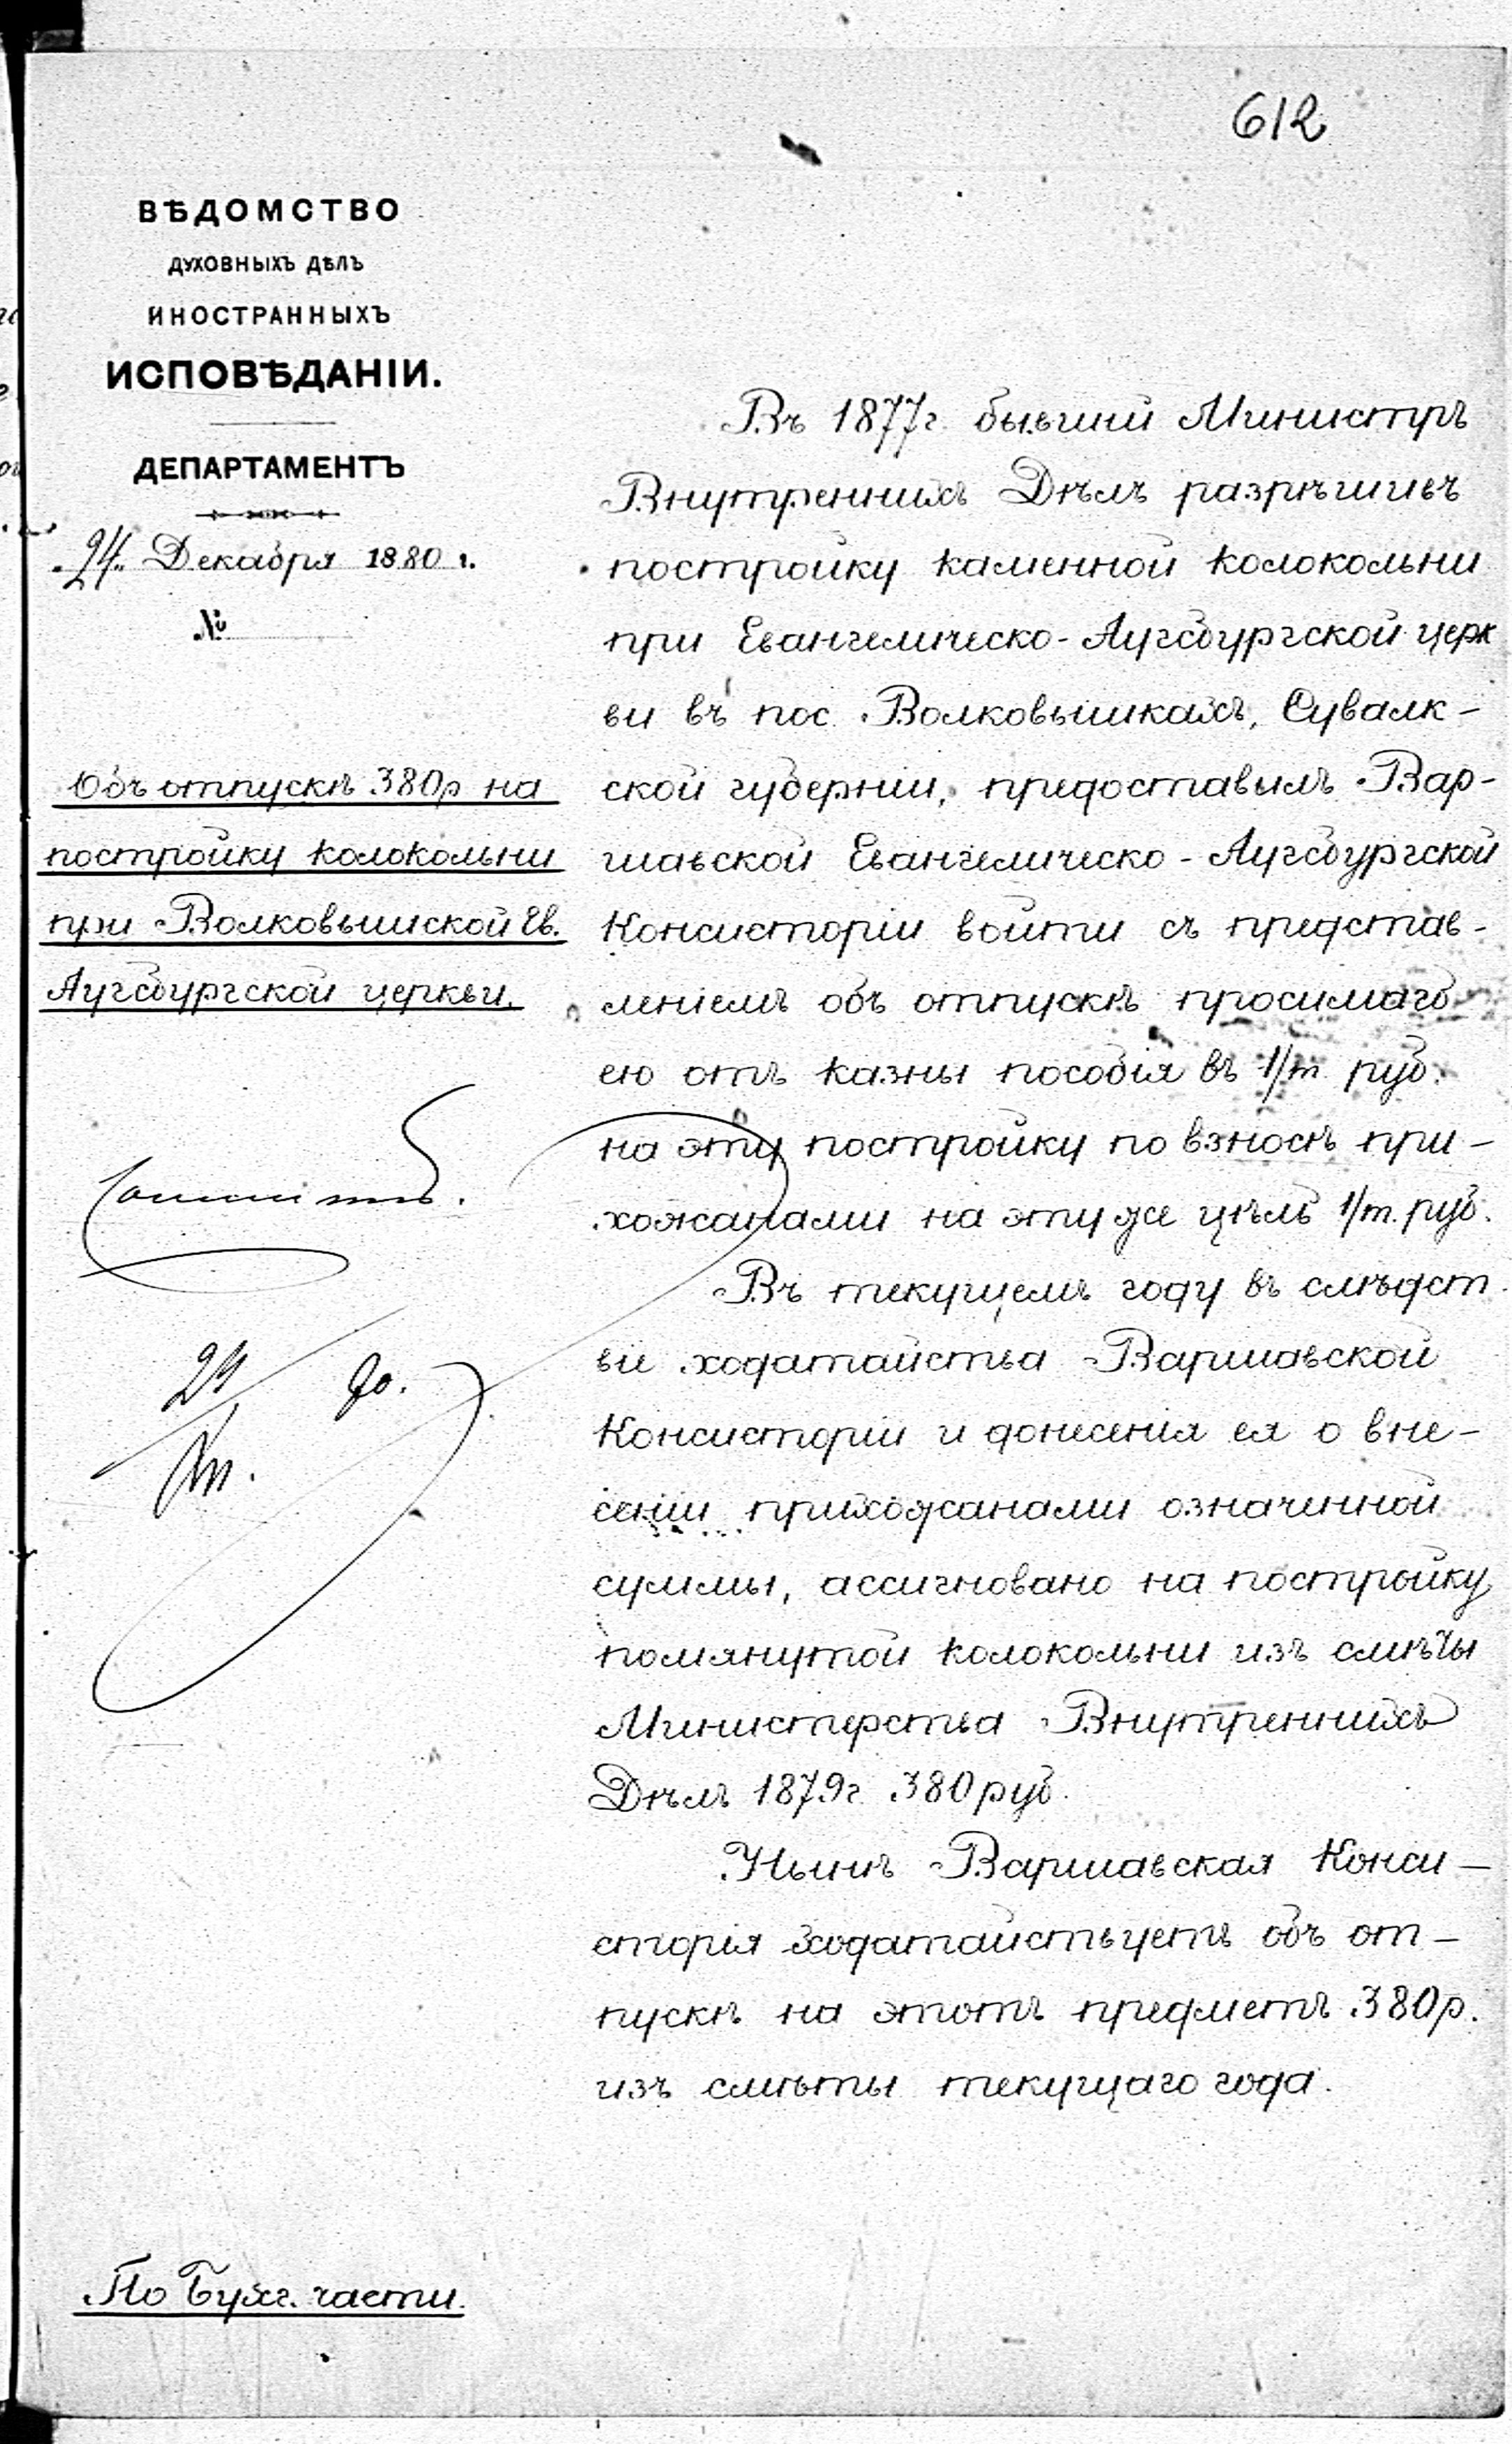 612
ВѢДОМСТВО
ДУХОВНЫХЪ ДѢЛЪ
ИНОСТРАННЫХЪ
ИСПОВѢДАНІИ.
ДЕПАРТАМЕНТЪ
24 Декабря 1880 г.
№
Объ отпускѣ 380р на
постройку колокольни
при Волковышской Ев.
Аугсбургской церкви.
24 До.
По Бухг. части.
Въ 1877г. бывшій Министръ
Внутреннихъ Дѣлъ разрѣшивъ
постройку каменной колокольни
при Евангелическо-Аугсбургской церк
ви въ пос. Волковышкахъ, Сувалк-
ской губерніи, предоставилъ Вар-
шавской Евангелическо-Аугсбургской
Консисторіи войти съ представ-
леніемъ объ отпускѣ просимаго
ею отъ казны пособія въ 1/т руб.
на эту постройку по взносѣ при-
хожанами на эту же цѣль 1/т. руб.
Въ текущемъ году въ слѣдст
віе ходатайства Варшавской
Консисторіи и донесенія ея о вне-
сеніи прихожанами означенной
суммы, ассигновано на постройку
помянутой колокольни изъ смѣты
Министерства Внутреннихъ
Дѣлъ 1879г. 380 руб.
Нынѣ Варшавская Конси-
сторія ходатайствуетъ объ от-
пускѣ на этотъ предметъ 380р.
изъ смѣты текущаго года.